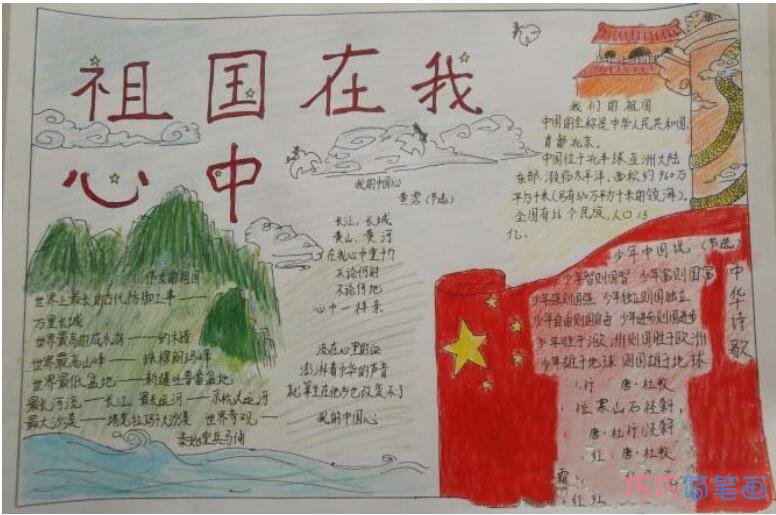 祖国在我
心中
我们的祖国
中国的全称是中华人民共和国,
首都北京。
中国位于北半球亚洲大陆
东部,濒临太平洋,面积约960万
平方千米(另有300万平方千米的领海)。
全国有56个民族,人口13
亿。
我的中国心
黄霑(节选)
长江,长城
黄山,黄河
在我心中重千斤
不论何时
不论何地
心中一样亲
流在心里的血
澎湃着中华的声音
就算生在他乡也改变不了
我的中国心
伟大的祖国
世界上最长的古代防御工事——
万里长城
世界最高的咸水湖——纳木错
世界最高山峰——珠穆朗玛峰
世界最低盆地——新疆吐鲁番盆地
最长河流——长江 最长运河——京杭大运河
最大沙漠——塔克拉玛干大沙漠 世界奇观——
秦始皇兵马俑
中华诗歌
少年中国说(节选)
少年智则国智 少年富则国富
少年强则国强 少年独立则国独立
少年自由则国自由 少年进步则国进步
少年胜于欧洲则国胜于欧洲
少年雄于地球 则国雄于地球
行 唐·杜牧
寒山石径斜,
唐·杜行径斜
红 唐·杜牧
霜
红 红
巧巧简笔画